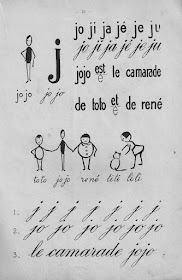 jo ji ja jé je ju
j
jo ji ja jé je ju
jojo est le camarade
è
jojo jo jo
de toto et de rené
é
toto jojo rené titi lili
1. j j j j. j. j. j
2. jo jo jo jo jo jo
3. le camarade jojo